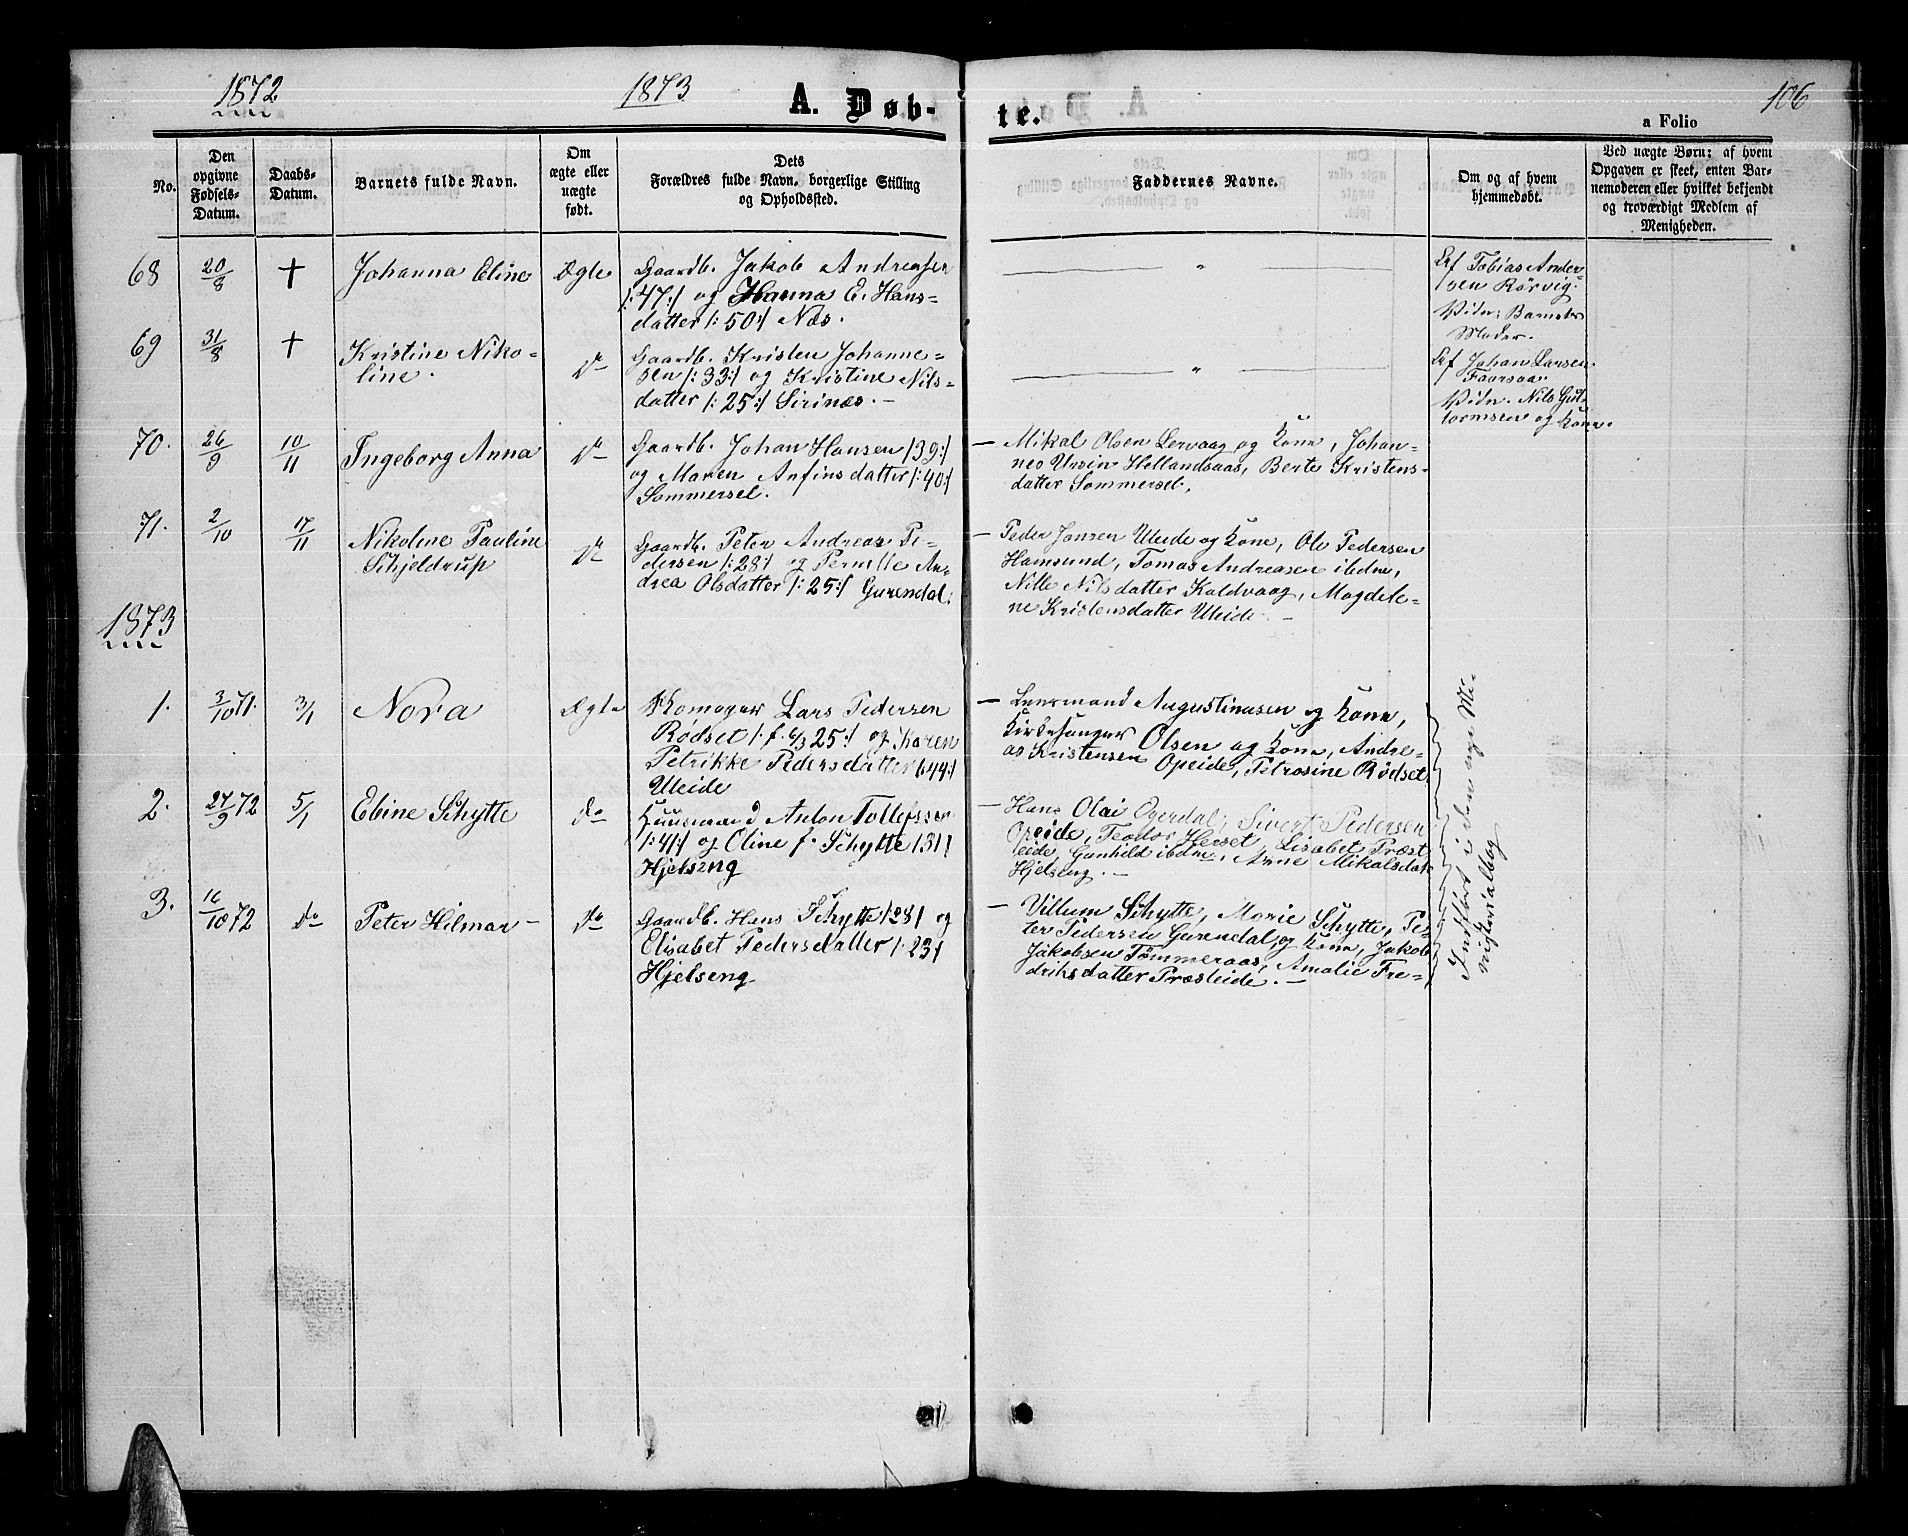 1872
1873
A. Døb-
te.
106
a Folio
No.
Den opgivne Fødsels-Datum.
Daabs-Datum.
Barnets fulde Navn.
Om ægte eller uægte født.
Dets Forældres fulde Navn, borgerlige Stilling og Opholdssted.
Faddernes Navne.
Om og af hvem hjemmedøbt.
Ved uægte Børn; af hvem Opgaven er skeet, enten Barnemoderen eller hvilket bekjendt og troværdigt Medlem af Menigheden.
68 20/8 + Johanna Eline Ægte
Gaardb. Jakob Andreasen
/:47:/ og Hanna E. Hans-
datter /:50:/ Næs.
— " —
af Tobias Ander-
sen Rörvig.
Vidn: Barnets
Moder.
69 31/8 + Kristine Niko-
line. Do
Gaardb. Kristen Johanne-
sen /:33:/ og Kristine Nils-
datter /:25:/ Sirinæs. —
— " —
af Johan Larsen
Vidn. Nils Gut-
tormsen og Kone.
70. 26/9 10/11 Ingeborg Anna Do
Gaardb. Johan Hansen /39:/
og Maren Anfinsdatter /:40:/
Sommersel.
— Mikal Olsen Lervaag og Kone, Johan-
nes Ursin Hellandsaas, Berte Kristens-
datter Sommersel.
71. 2/10 17/11 Nikoline Pauline
Schjeldrup Do
Gaardb. Peter Andreas Pe-
dersen /:28/ og Pernille An-
drea Olsdatter /:25:/ Gurendal.
— Peder Jansen Uleide og Kone, Ole Pedersen
Hamsund, Tomas Andreasen ibdm,
Nille Nilsdatter Kaldvaag, Magdele-
ne Kristensdatter Uleide. —
1873
1. 3/10 71. 3/1 Nora Ægte
Komager Lars Pedersen
Rødset /: f. 6/3 25:/ og Karen
Petrikke Pedersdatter /:44:/
Uleide
— Lensmand Augustinusen og Kone,
Kirkesanger Olsen og Kone, Andre-
as Kristensen Opeide, Petrosine Rödset
2. 27/9 72 5/1 Ebine Schytte Do
Huusmand Anton Tollefssen
/:41/ og Oline f. Schytte /31/
Hjelseng
— Hans Olai Ogerdal, Sivert Pedersen
Opeide, Teodor Herset, Lisabet Præst-
eide, Gunhild ibdm, Anne Mikalsdatr
Hjelseng. —
3. 16/10 72 Do Peter Hilmar — Do
Gaardb. Hans Schytte /28/ og
Elisabet Pedersdatter /:23/
Hjelseng
— Villum Schytte, Marie Schytte, Pe-
ter Pedersen Gurendal og Kone, Jakob
Jakobsen Tömmeraas, Amalie Fre-
driksdatter Præsteide. —
Indført i den nye Mi-
nisterialbog